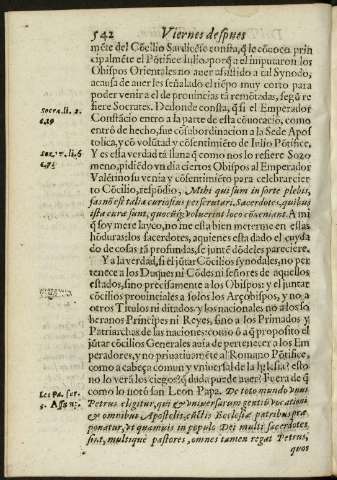 542 Viernes despues
mẽte del Cõcilio Sardicẽse consta, q̃ le cõuoco prin
cipalmẽte el Põtifice Iulio, porq̃ a el imputaron los
Obispos Orientales no auer assistido a tal Synodo,
a causa de auer les señalado el tiẽpo muy corto para
poder venir a el de prouincias tã remotadas, segũ re
fiere Socrates. De donde consta, q̃ si el Emperador
Constãcio entro a la parte de esta cõuocacio, como
entrò de hecho, fue cõ subordinacion a la Sede Apos
tolica, y cõ volũtad y cõsentimiẽto de Iulio Põtifice,
Y es esta verdad tã llana q̃ como nos lo refiere Sozo
meno, pidiẽdo vn dia ciertos Obispos al Emperador
Valẽtino su venia y cõsentimiẽto para celebrar cier
to Cõcilio, respõdio, Mihi qui sum in sorte plebis,
fas nõ est talia curiosius perscrutari. Sacerdotes, quibus
ista curæ sunt, quocũq; voluerint loco cõueniant. A mi
q̃ soy mere layco, no me esta bien meterme en estas
hõduras: los sacerdotes, a quienes esta dado el cuyda
do de cosas tã profundas, se juntẽ dõde les pareciere.
Y a la verdad, si el jũtar Cõcilios synodales, no per
tenece a los Duques ni Cõdes ni señores de aquellos
estados, sino precisamente a los Obispos: y el juntar
cõcilios prouinciales a solos los Arçobispos, y no a
otros Titulos ni ditados: y los nacionales no a los so
beranos Principes ni Reyes, sino a los Primados y
Patriarchas de las naciones: como ò a q̃ proposito el
jũtar cõcilios Generales auia de pertenecer a los Em
peradores, y no priuatiuamẽte al Romano Põtifice,
como a cabeça comun y vniuersal de la Iglesia? esto
no lo verã los ciegos? q̃ duda puede auer? Fuera de q̃
como lo notò san Leon Papa. De toto mundo vnus
Petrus eligitur, qui &amp; vniuersarum gentiũ vocationi
&amp; omnibus Apostolis, cũctis Ecclesiæ patribus præ
ponatur, vt quamuis in populo Dei multi sacerdotes
sint, multique pastores, omnes tamen regat Petrus,
quos
Socra. li. 2.
Leõ Pa. ser.
3. Assun.